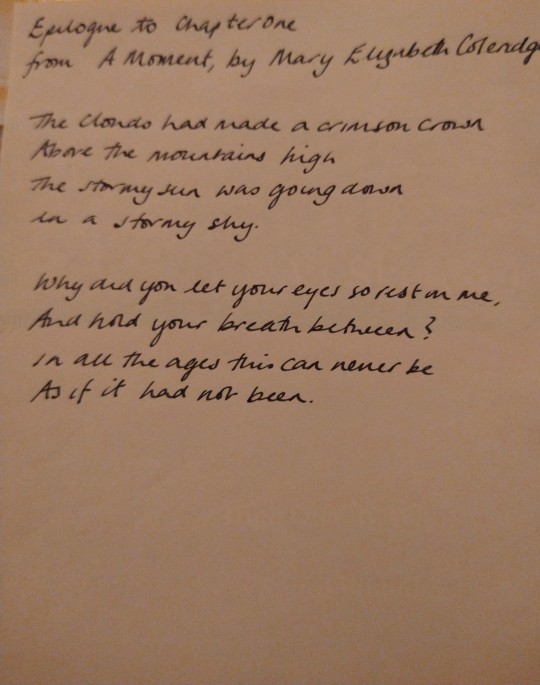 Epilogue to Chapter One
from A Moment, by Mary Elizabeth Coleridg
The Clouds had made a crimson crown
Above the mountains high
The stormy sun was going down
in a stormy sky.
Why did you let your eyes so rest on me,
And hold your breath between?
In all the ages this can never be
As if it had not been.